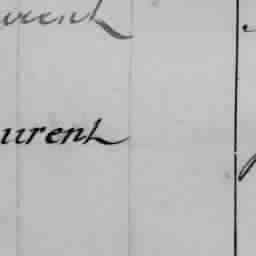 urent
urent